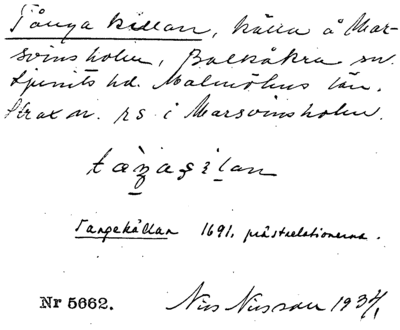 Tånga källan, källa å Mar-
svinsholm, Balkåkra sn.
Ljunits hd. Malmöhus län.
Strax n. rs i Marsvinsholm.
Tangekällan 1691, prästrelationerna.
Nr 5662. Nils Nilsson 1934